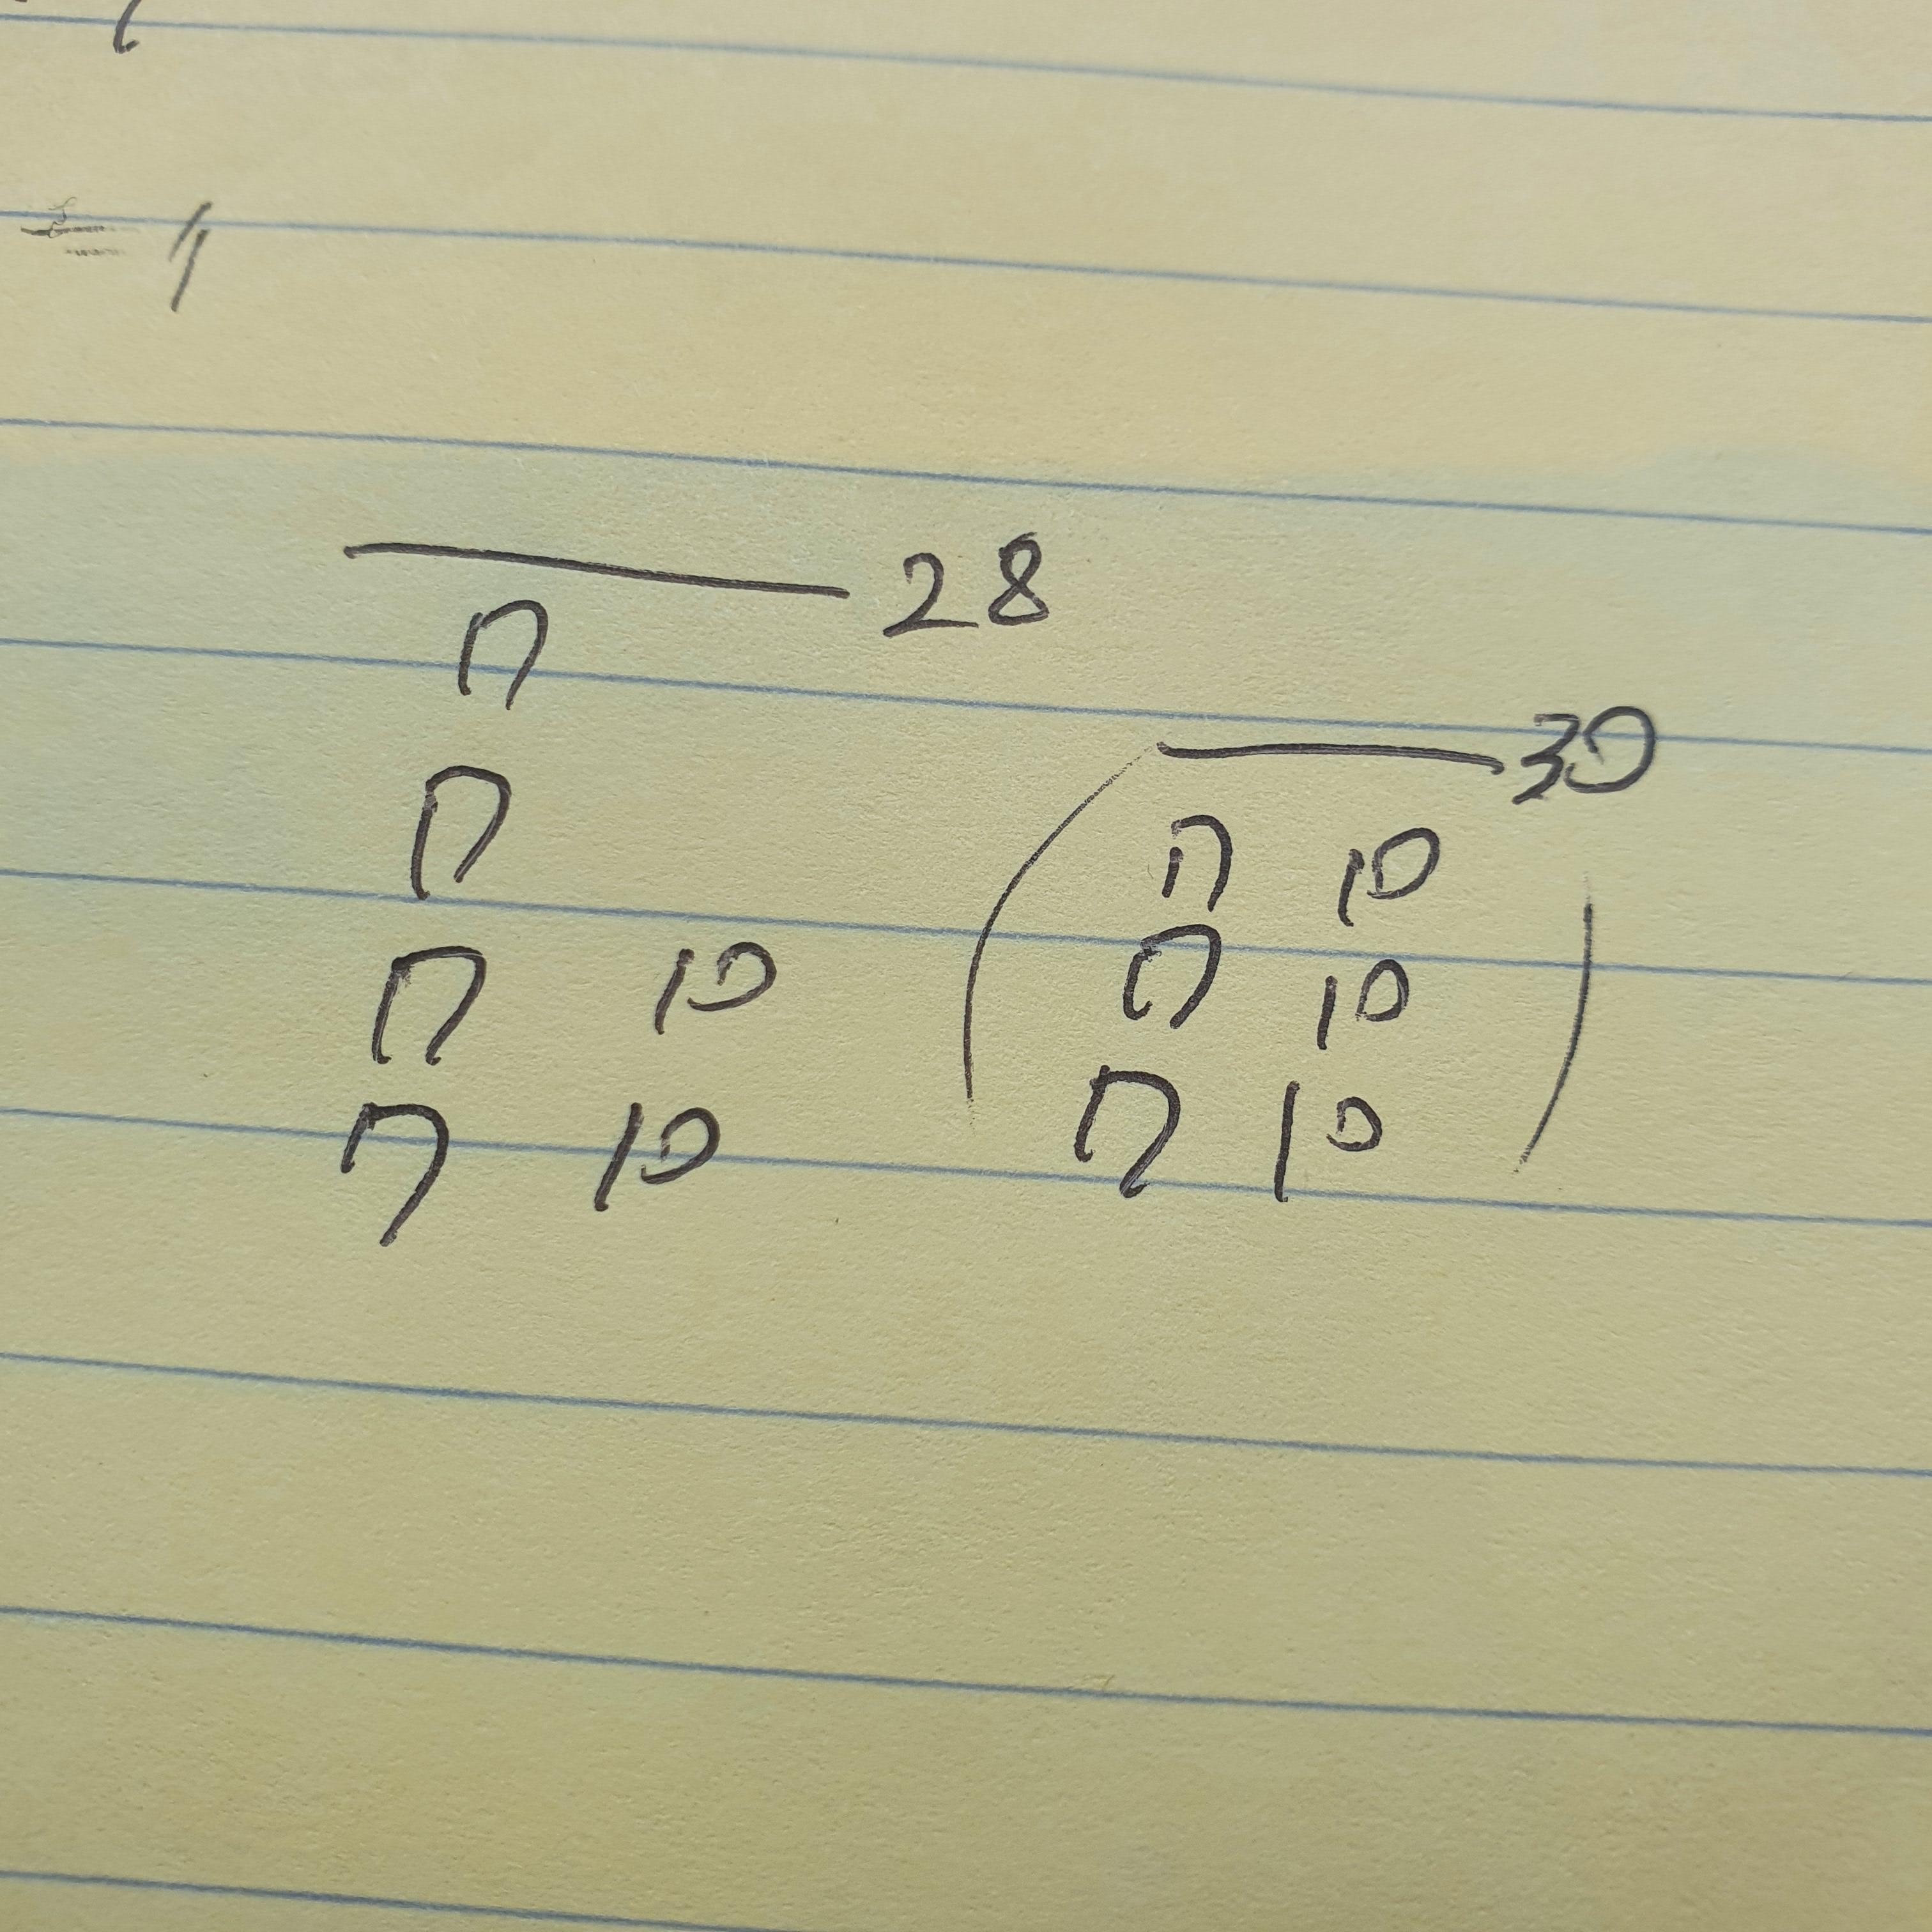 = 1
28
n
n
n 10
n 10
30
n 10
n 10
n 10